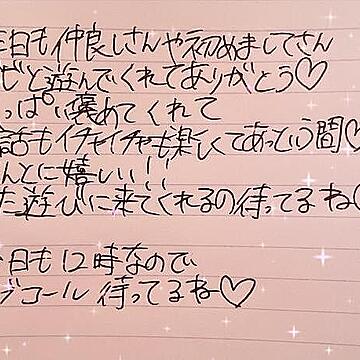 日も仲良しさんや初めましてさん
と遊んでくれてありがとう♡
っぱい褒めてくれて
話もイチャイチャも楽しくてあっという間♡
んとに嬉しい!!
た遊びに来てくれるの待ってるね♡
日も12時なので
コール待ってるねー♡